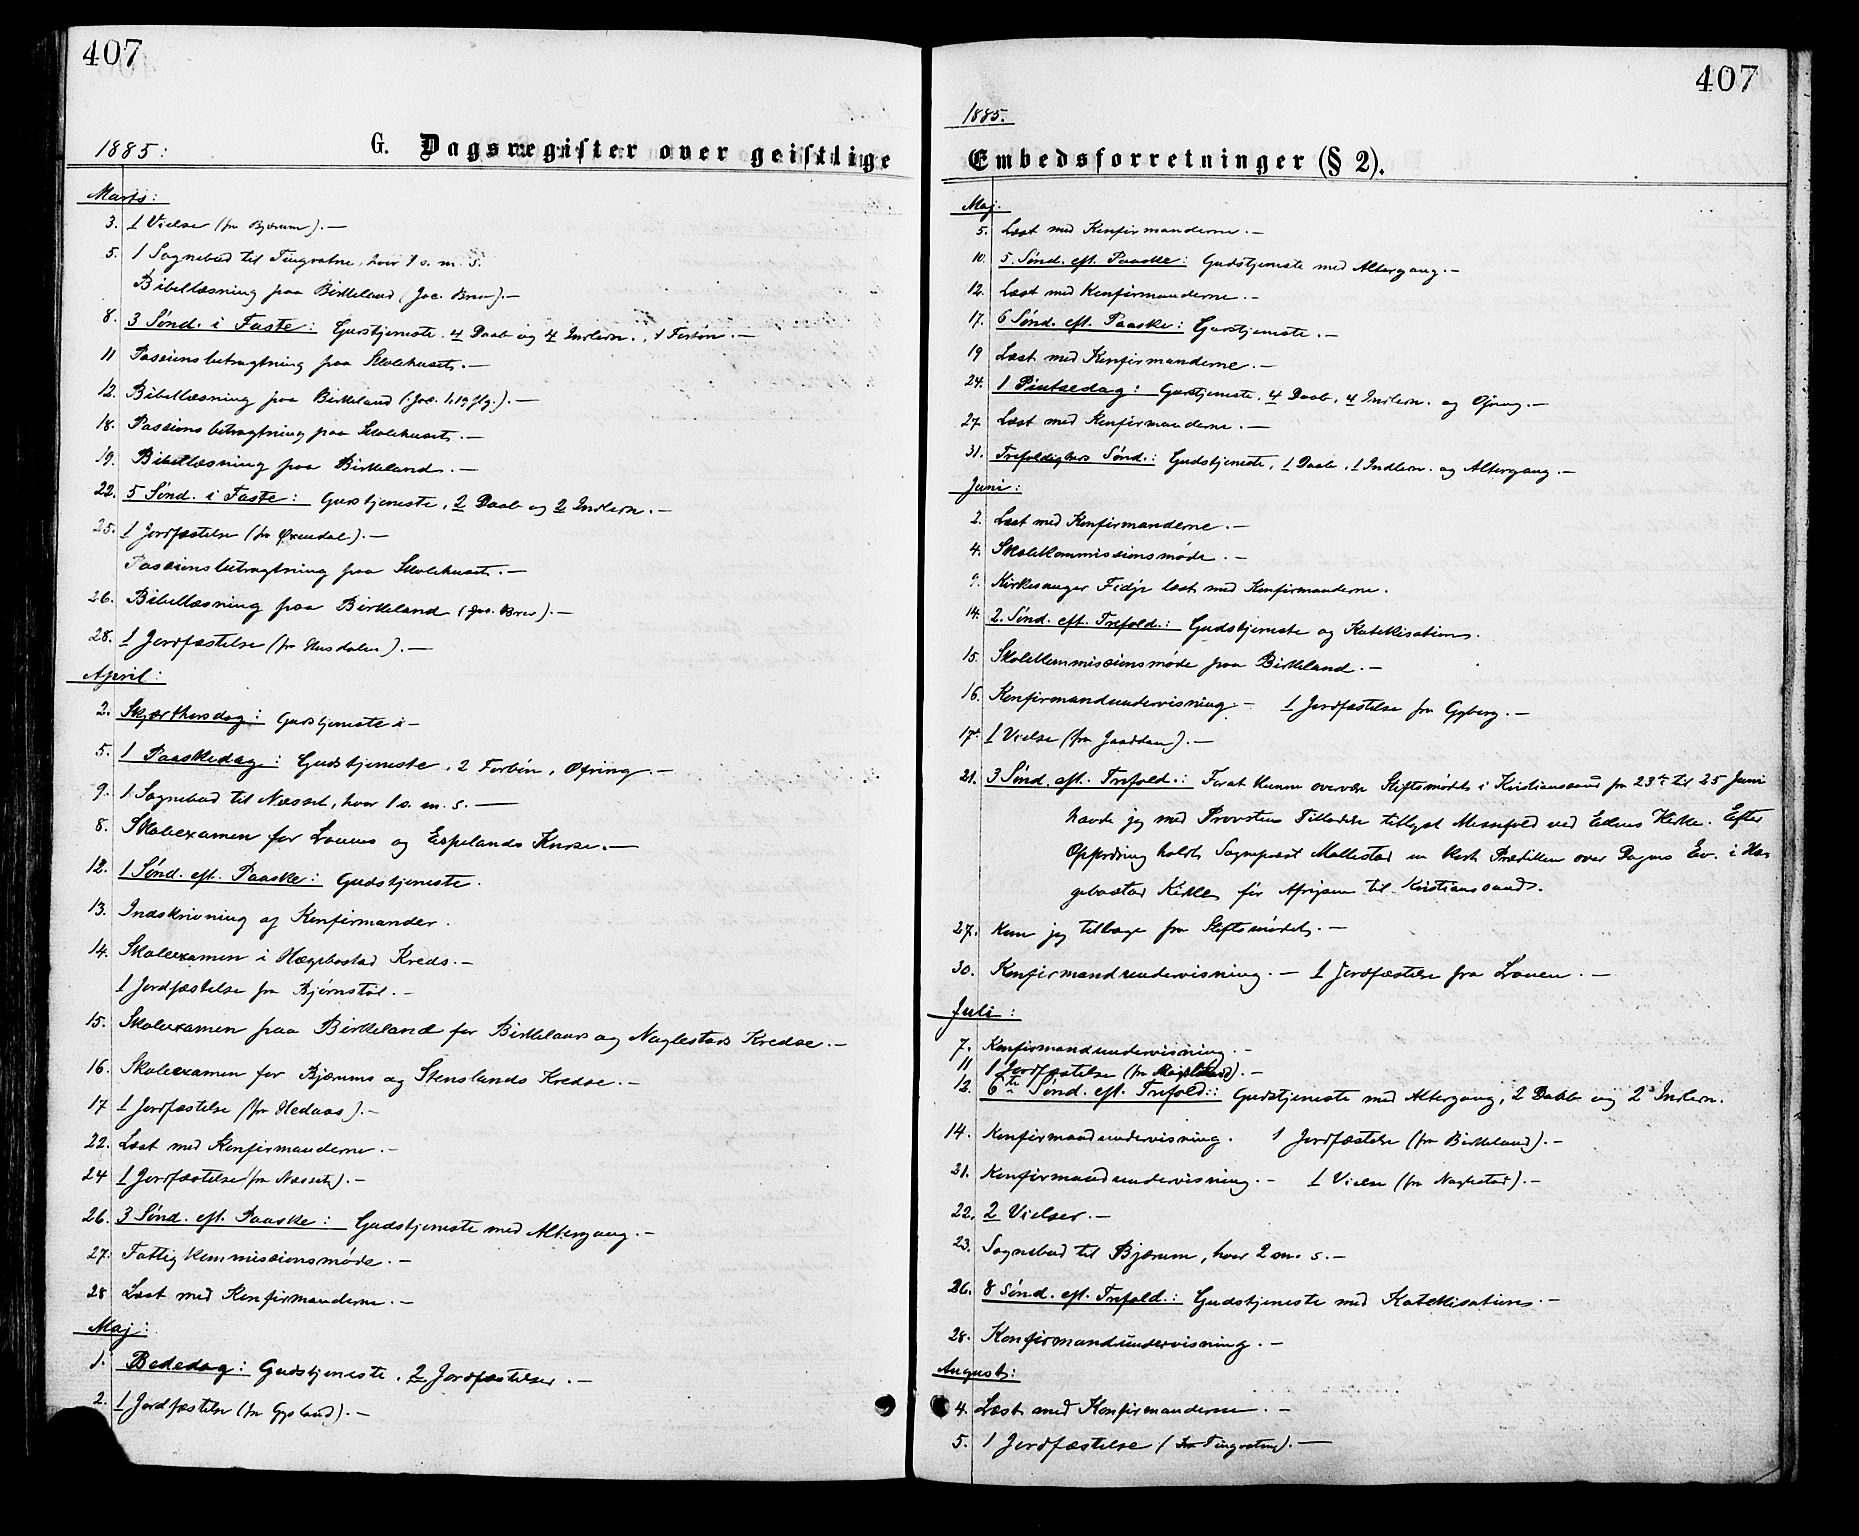 407
1885:
G. Dagsregister over geistlige
Marts:
3. 1 Vielse (fra Bjærum). —
5. 1 Sognebud til Tingvatne, hvor 1 s. m. s.
Bibellæsning paa Birkeland (Jac. Brev). —
8. 3 Sønd. i Faste: Gudstjeneste. 4 Daab og 4 Indlem.
11 Passionsbetragtning paa Skolehuset. —
12. Bibellæsning paa Birkeland (Jac. 1,19 flg.). —
18. Passionsbetragtning paa Skolehuset. —
19. Bibellæsning paa Birkeland. —
22. 5 Sønd. i Faste: Gudstjeneste, 2 Daab og 2 Indlem. —
25. 1 Jordfæstelse (fra Øxendal). —
Passionsbetragtning paa Skolehuset. —
26. Bibellæsning paa Birkeland (Jac. Brev). —
28. 1 Jordfæstelse (fra Husdalen). —
April:
2. Skjærthorsdag: Gudstjeneste —
5. 1 Paaskedag: Gudstjeneste, 2 Forbøn, Ofring. —
9. 1 Sognebud til Næsset, hvor 1 s. m. s. —
8. Skoleexamen for Lauens og Espelands Kredse. —
12. 1 Sønd. eft. Paaske: Gudstjeneste.
13. Indskrivning af Konfirmander.
14. Skoleexamen i Hægebostad Kreds. —
1 Jordfæstelse fra Bjørnstøl. —
15. Skoleexamen paa Birkeland for Birkelands og Naglestads Kredse. —
16. Skoleexamen for Bjærums og Stenslands Kredse. —
17 1 Jordfæstelse (fra Hedaas). —
22. Læst med Konfirmanderne. —
24 1 Jordfæstelse (fra Næsset). —
26. 3 Sønd. eft. Paaske: Gudstjeneste med Altergang. —
27. Fattigkommissionsmøde. —
28 Læst med Konfirmanderne. —
Maj:
1. Bededag: Gudstjeneste. 2 Jordfæstelser. —
2. 1 Jordfæstelse (fra Gysland). —
407
1885.
Embedsforretninger (§ 2).
Maj.
5. Læst med Konfirmanderne. —
10. 5. Sønd. eft. Paaske: Gudstjeneste med Altergang. —
12. Læst med Konfirmanderne. —
17. 6 Sønd. eft. Paaske: Gudstjeneste. —
19 Læst med Konfirmanderne. —
24. 1 Pintsedag: Gudstjeneste, 4 Daab, 4 Indlem. og Ofring. —
27. Læst med Konfirmanderne. —
31. Trefoldigheds Sønd.: Gudstjeneste, 1 Daab, 1 Indlem. og Altergang. —
Juni:
2. Læst med Konfirmanderne. —
4. Skolekommissionsmøde. —
9. Kirkesanger Fidje læst med Konfirmanderne.
14. 2. Sønd. eft. Trefold.: Gudstjeneste og Katekisation.
15. Skolekommissionsmøde paa Birkeland. —
16. Konfirmandundervisning. — 1 Jordfæstelse fra Gyberg. —
17. 1 Vielse (fra Jaaddan). —
21. 3 Sønd. eft. Trefold.: For at kunne overvære Stiftsmødet i Kristianssand fra 23de til 25 Juni
havde jeg med Provstens Tilladelse tillyst Messefald ved Eidens Kirke. Efter
Opfordring holdt Sognepræst Mollestad en kort Prædiken over Dagens Ev. i Hæ-
gebostad Kirke, før Afrejsen til Kristianssand.
27. Kom jeg tilbage fra Stiftsmødet. —
30. Konfirmandundervisning. — 1 Jordfæstelse fra Lauen. —
Juli:
7. Konfirmandundervisning. —
11 1 Jordfæstelse (fra
12. 6te Sønd. eft. Trefold.: Gudstjeneste med Altergang, 2 Daab og 2 Indlem.
14. Konfirmandundervisning. 1 Jordfæstelse (fra Birkeland). —
21. Konfirmandundervisning. — 1 Vielse (fra Naglestad). —
22. 2 Vielser. —
23. Sognebud til Bjærum, hvor 2 m. s. —
26. 8 Sønd. eft. Trefold.: Gudstjeneste med Katekisation. —
28. Konfirmandundervisning. —
August:
4. Læst med Konfirmanderne. —
5. 1 Jordfæstelse (fra Tingvatne). —